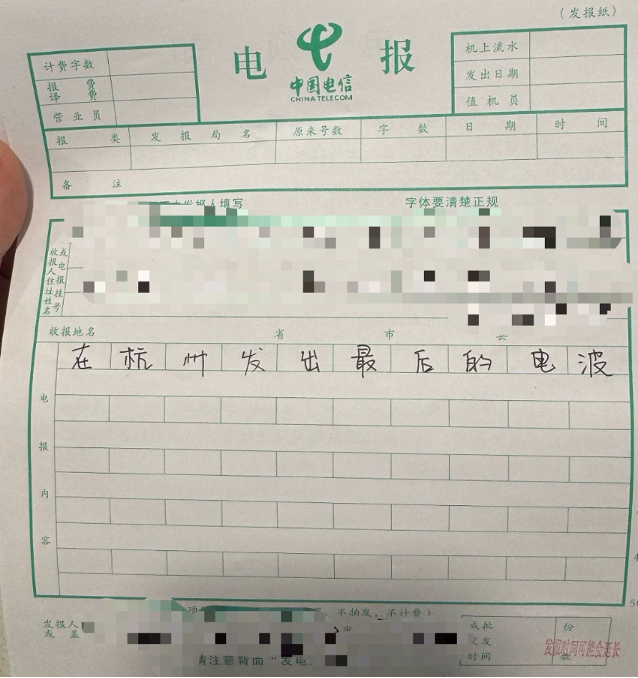 (发报纸)
电 中国电信 报
CHINA TELECOM
计费字数
报费
译费
营业员
机上流水
发出日期
值机员
报类 发报局名 原来号数 字数 日期 时间
备注
发报人填写 字体要清楚正规
收报人住址姓名
或电报挂号
收报地名 省 市 县
在杭州发出最后的电波
电报内容
不拍发、不计费)
发报人
或盖
请注意背面“发电
或批
之发
时间
份
数
发报时间可能会延长